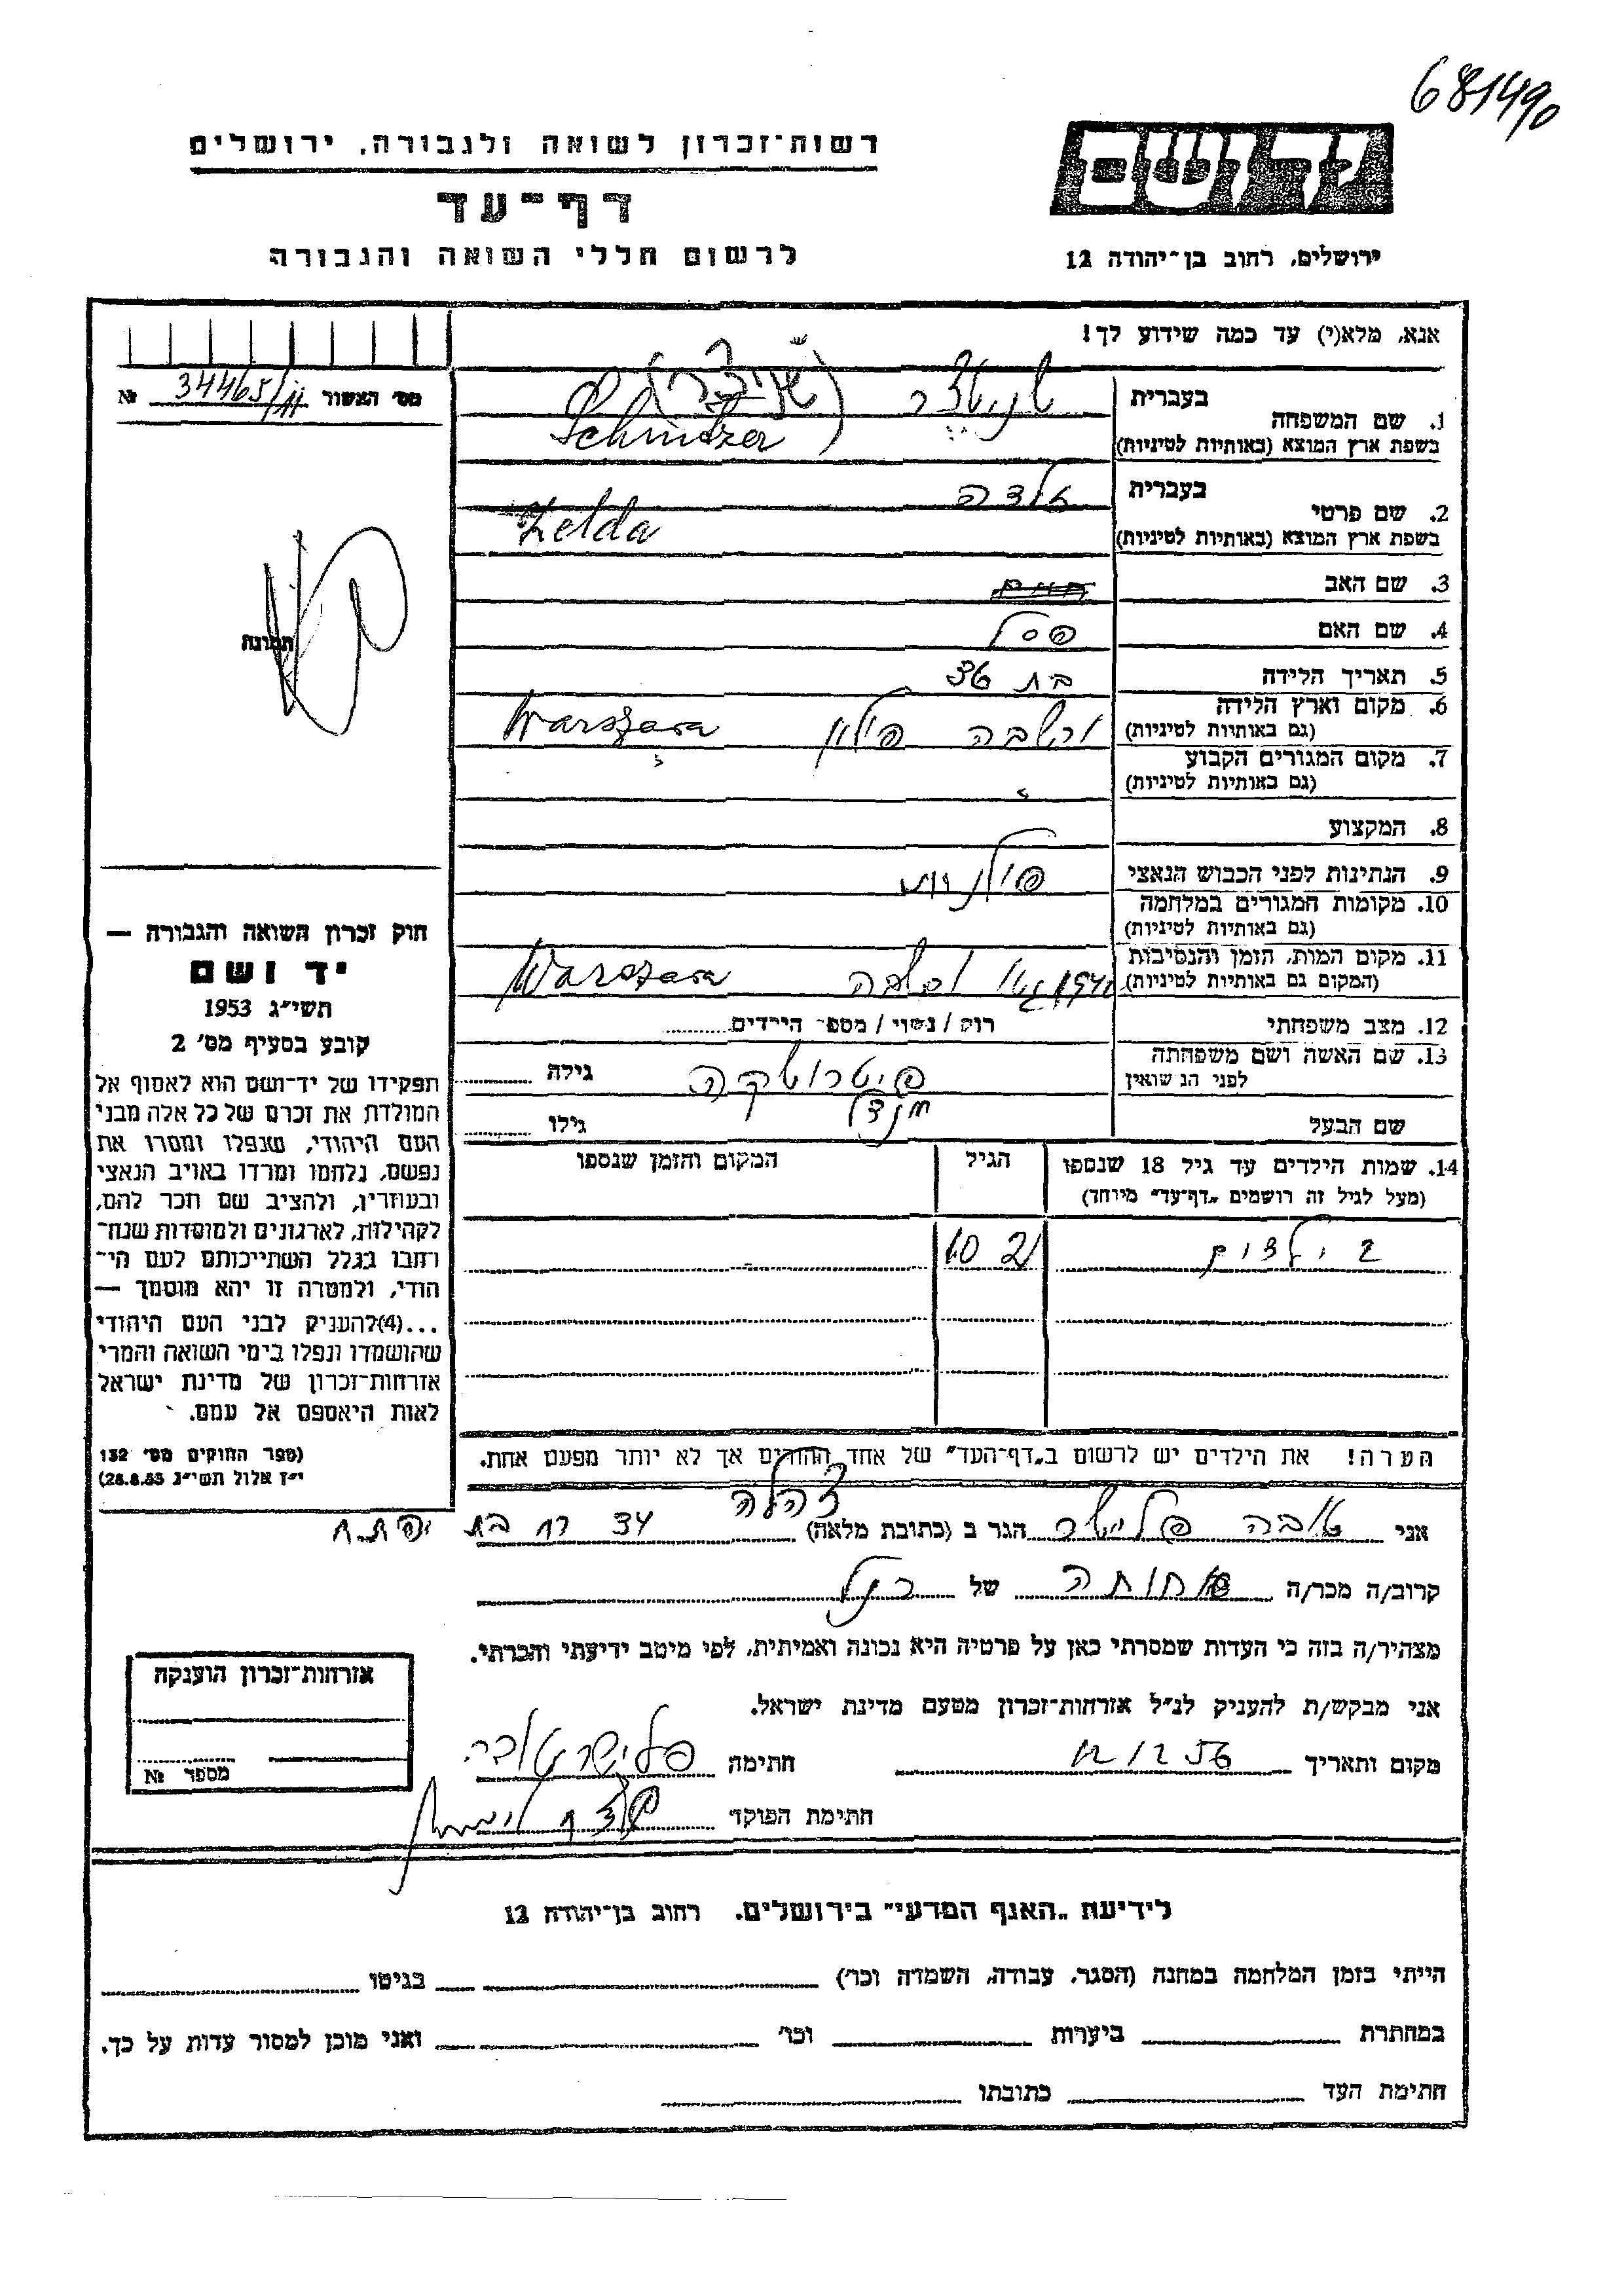 681490
רשות־זכרון לשואה ולגבורה, ירושלים
יד ושם
דף־עד
לרשום חללי השואה והגבורה
ירושלים, רחוב בן־יהודה 12
אנא, מלא(י) עד כמה שידוע לך!
מס׳ האשור 34465/11 №
1. שם המשפחה בעברית שניטצר (שניצר)
בשפת ארץ המוצא (באותיות לטיניות) Schnitzer
2. שם פרטי בעברית זלדה
בשפת ארץ המוצא (באותיות לטיניות) Zelda
3. שם האב חיים
4. שם האם פסל
תמונה
5. תאריך הלידה בת 36
6. מקום וארץ הלידה ורשבה פולין Warszawa
(גם באותיות לטיניות)
7. מקום המגורים הקבוע
(גם באותיות לטיניות)
8. המקצוע
9. הנתינות לפני הכבוש הנאצי
10. מקומות המגורים במלחמה
(גם באותיות לטיניות)
11. מקום המות, הזמן והנסיבות Warszawa
(המקום גם באותיות לטיניות)
12. מצב משפחתי רוק / נשוי / מספר הילדים
13. שם האשה ושם משפחתה פיטרושקה גילה
לפני הנשואין
שם הבעל גילו
14. שמות הילדים עד גיל 18 שנספו הגיל המקום והזמן שנספו
(מעל לגיל זה רושמים „דף־עד״ מיוחד)
2 ילדים
הערה! את הילדים יש לרשום ב„דף־העד״ של אחד ההורים אך לא יותר מפעם אחת.
חוק זכרון השואה והגבורה —
יד ושם
תשי״ג 1953
קובע בסעיף מס׳ 2
תפקידו של יד־ושם הוא לאסוף אל
המולדת את זכרם של כל אלה מבני
העם היהודי, שנפלו ומסרו את
נפשם, נלחמו ומרדו באויב הנאצי
ובעוזריו, ולהציב שם וזכר להם,
לקהילות, לארגונים ולמוסדות שנח־
רבו בגלל השתייכותם לעם הי־
הודי, ולמטרה זו יהא מוסמך —
...(4)להעניק לבני העם היהודי
שהושמדו ונפלו בימי השואה והמרי
אזרחות־זכרון של מדינת ישראל
לאות היאספם אל עמם.
(ספר החוקים מס׳ 132
י״ז אלול תשי״ג 28.8.53)
אני טובה פלישר הגר ב (כתובת מלאה) 34
קרוב/ה מכר/ה אחותה של הנ״ל
מצהיר/ה בזה כי העדות שמסרתי כאן על פרטיה היא נכונה ואמיתית, לפי מיטב ידיעתי והכרתי.
אני מבקש/ת להעניק לנ״ל אזרחות־זכרון מטעם מדינת ישראל.
מקום ותאריך 12 12 56 חתימה פלישר טובה
חתימת הפוקד
אזרחות־זכרון הוענקה
מספר №
לידיעת „האגף המדעי״ בירושלים, רחוב בן־יהודה 12
הייתי בזמן המלחמה במחנה (הסגר, עבודה, השמדה וכו׳) בגיטו
במחתרת ביערות וכו׳ ואני מוכן למסור עדות על כך.
חתימת העד כתובתו